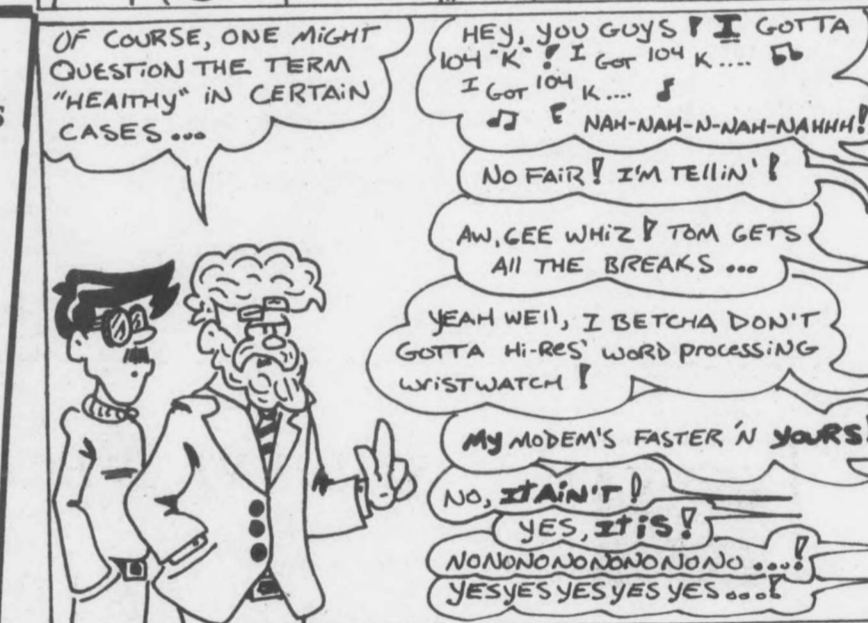 OF COURSE, ONE MIGHT
QUESTION THE TERM
"HEALTHY" IN CERTAIN
CASES ...
HEY, YOU GUYS! I GOTTA
104 "K"! I GOT 104 K ....
I GOT 104 K ....
NAH-NAH-N-NAH-NAHHH!
NO FAIR! I'M TELLIN'!
AW, GEE WHIZ! TOM GETS
All THE BREAKS ...
YEAH WEll, I BETCHA DON'T
GOTTA Hi-RES' WORD PROCESSING
WRISTWATCH!
MY MODEM'S FASTER 'N YOURS!
NO, IT AIN'T!
YES, IT IS!
NONONONONONONONO ....!
YESYESYESYESYES ....!